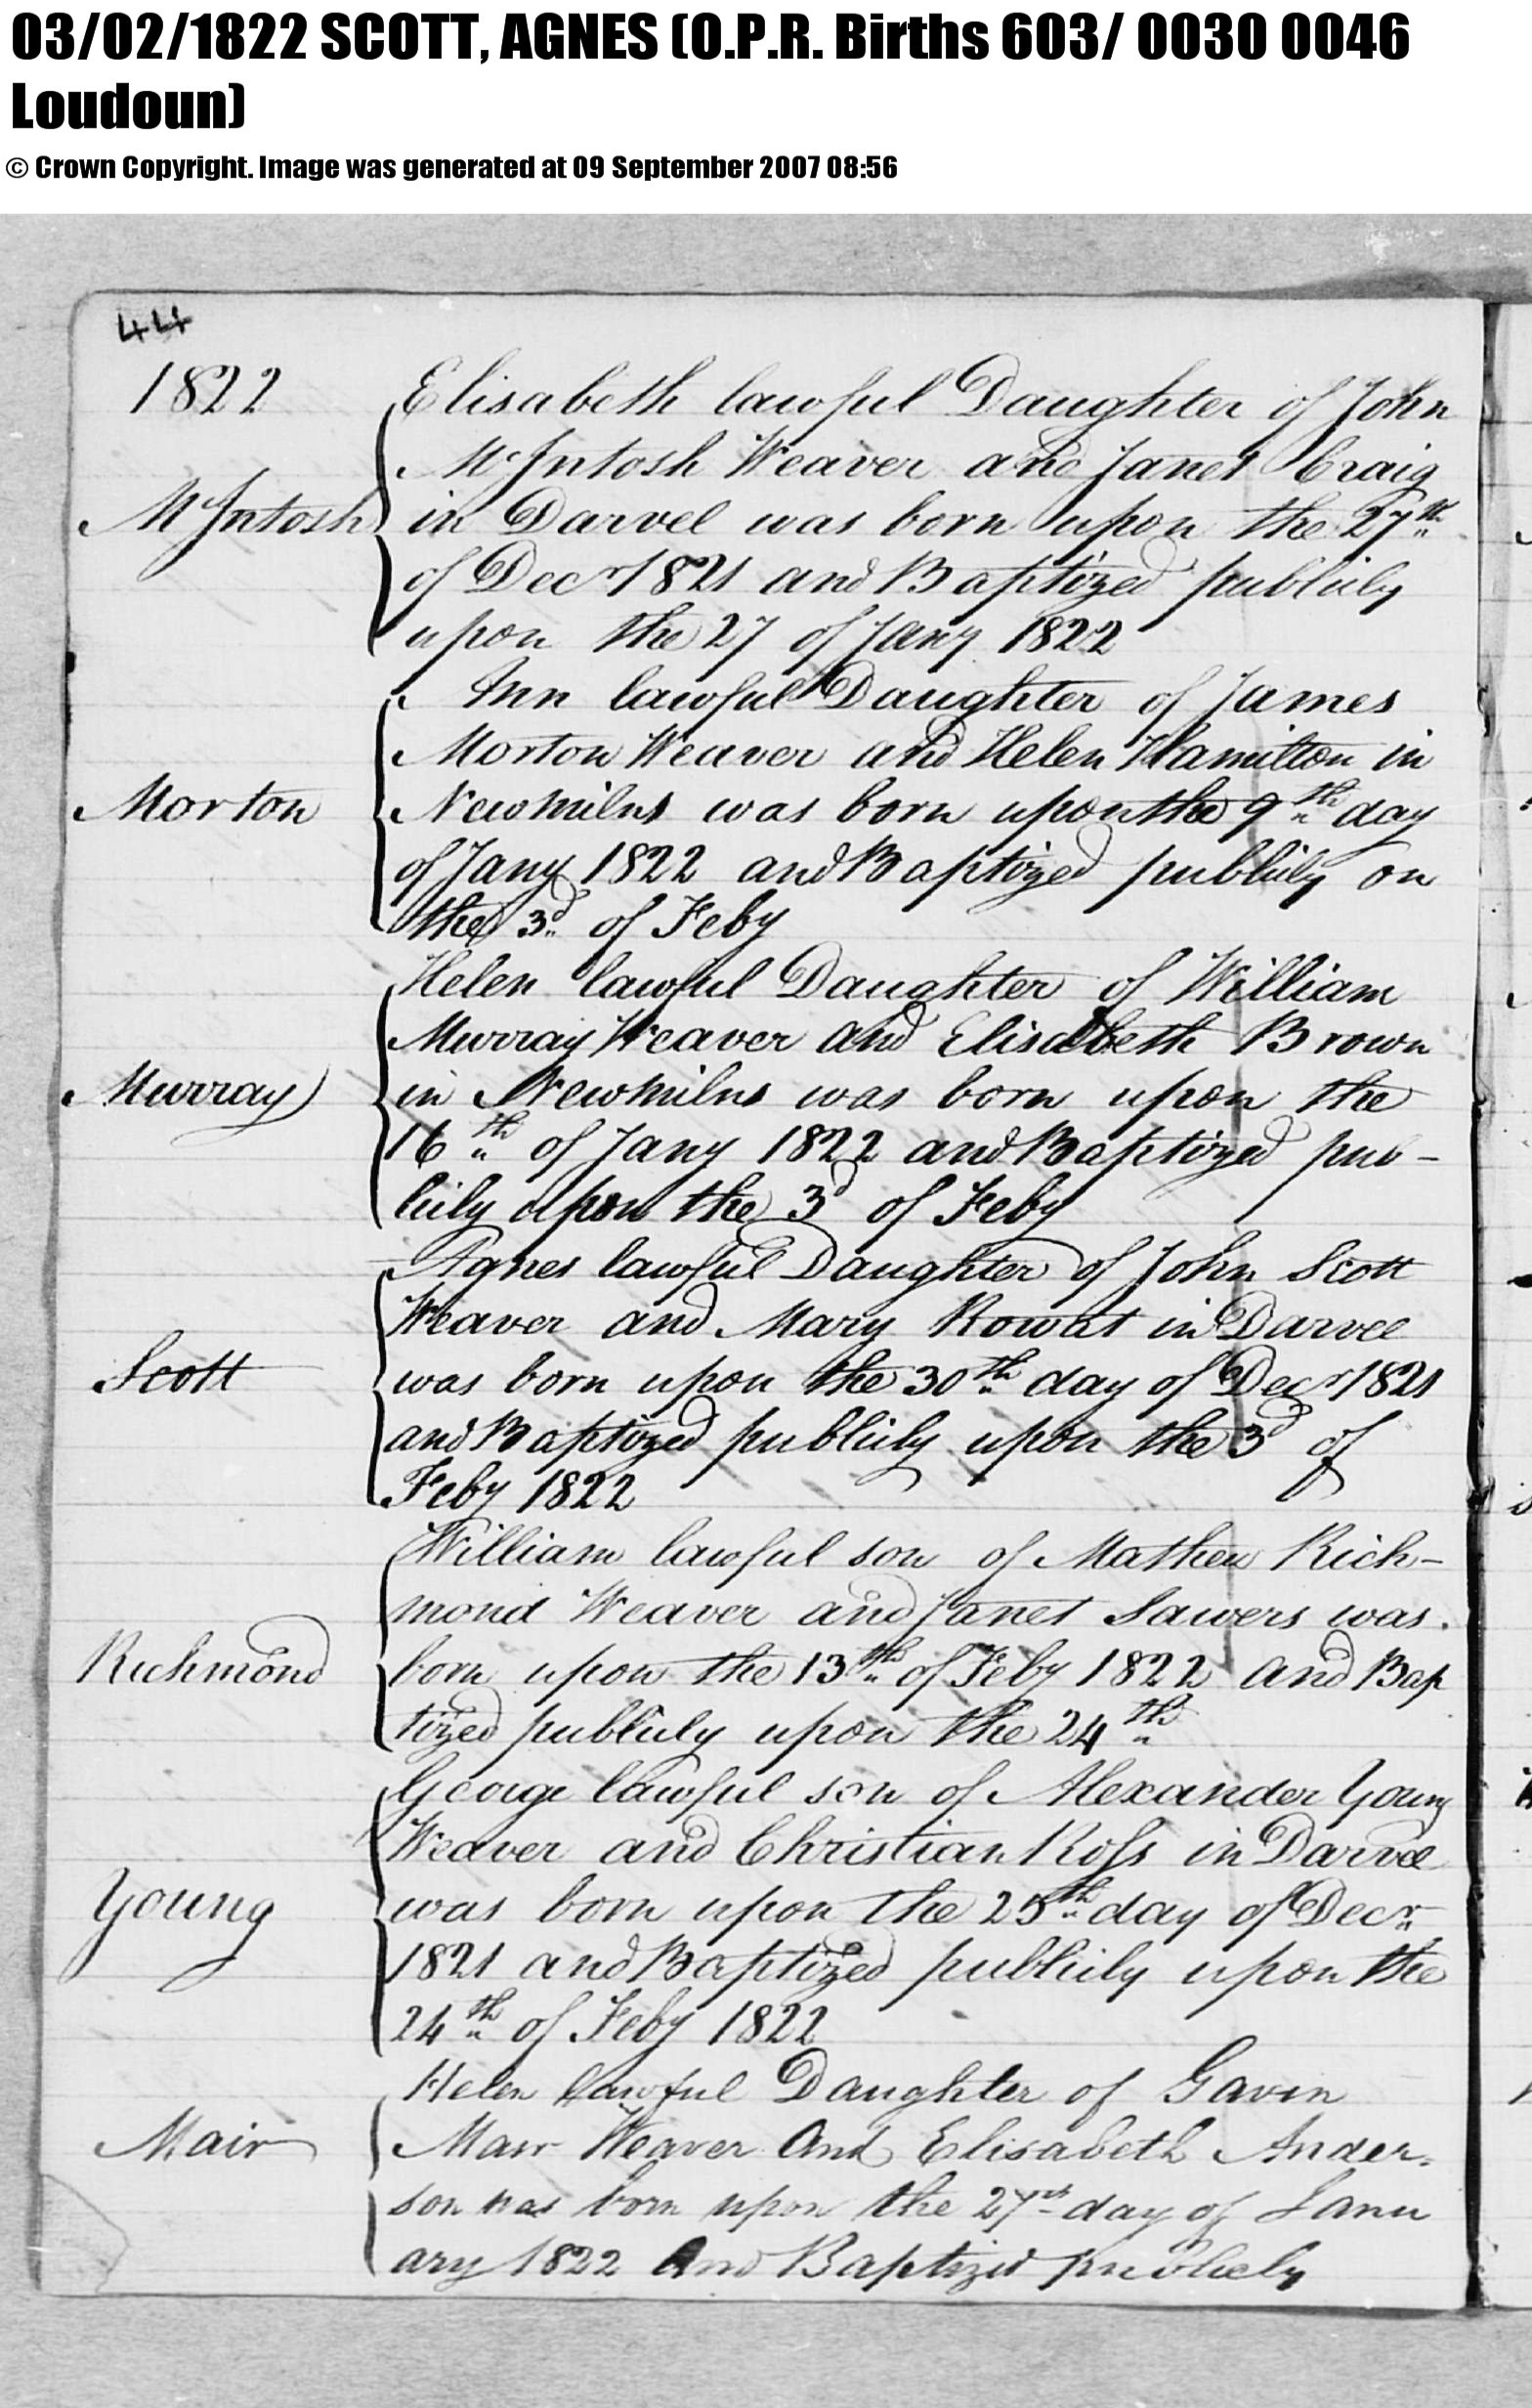 03/02/1822 SCOTT, AGNES (O.P.R. Births 603/ 0030 0046
Loudoun)
© Crown Copyright. Image was generated at 09 September 2007 08:56
44
1822
Elisabeth lawful Daughter of John
McIntosh Weaver and Janet Craig
McIntosh
in Darvel was born upon the 27th
of Decr 1821 and Baptized publicly
upon the 27 of Jany 1822
Ann lawful Daughter of James
Morton Weaver and Helen Hamilton in
Morton
Newmilns was born upon the 9th day
of Jany 1822 and Baptized publicly on
the 3d of Feby
Helen lawful Daughter of William
Murray Weaver and Elisabeth Brown
Murray
in Newmilns was born upon the
16th of Jany 1822 and Baptized pub-
licly upon the 3d of Feby
Agnes lawful Daughter of John Scott
Weaver and Mary Rowat in Darvel
Scott
was born upon the 30th day of Decr 1821
and Baptized publicly upon the 3d of
Feby 1822
William lawful son of Mathew Rich-
mond Weaver and Janet Sawers was
Richmond
born upon the 13th of Feby 1822 and Bap
tized publicly upon the 24th
George lawful son of Alexander Young
Weaver and Christian Ross in Darvel
Young
was born upon the 25th day of Decr
1821 and Baptized publicly upon the
24th of Feby 1822
Helen lawful Daughter of Gavin
Mair
Mair Weaver And Elisabeth Ander-
son was born upon the 27th day of Janu
ary 1822 And Baptized publicly